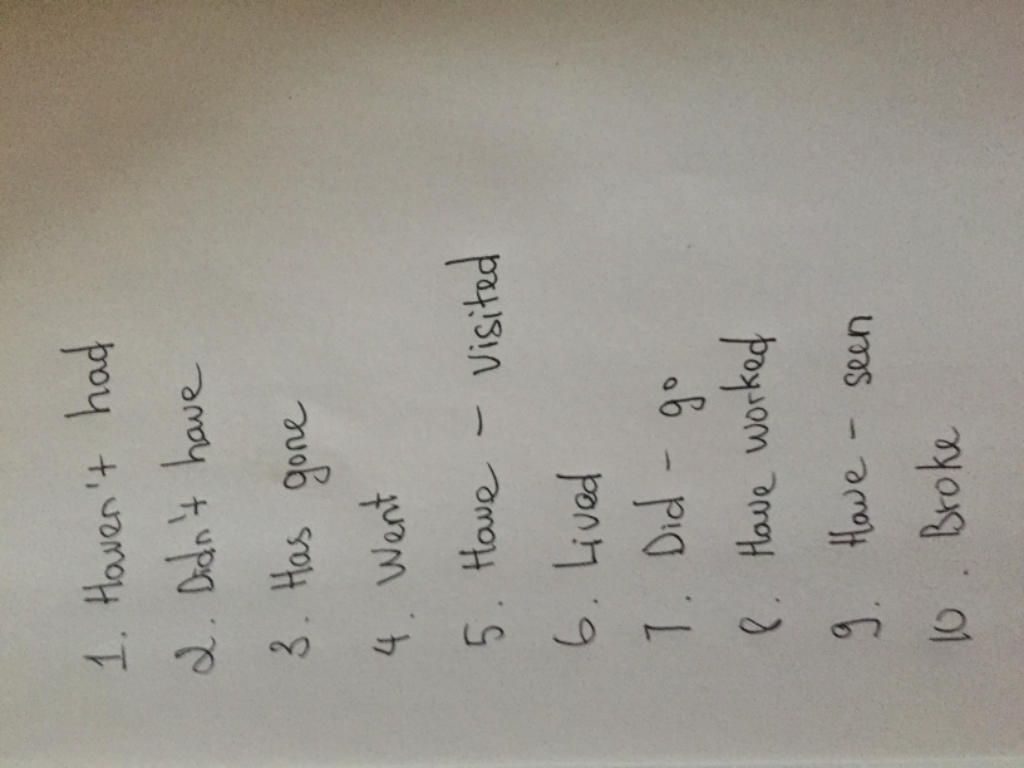 1. Haven't had
2. Didn't have
3. Has gone
4. Went
5. Have - visited
6. Lived
7. Did - go
8. Have worked
9. Have - seen
10. Broke